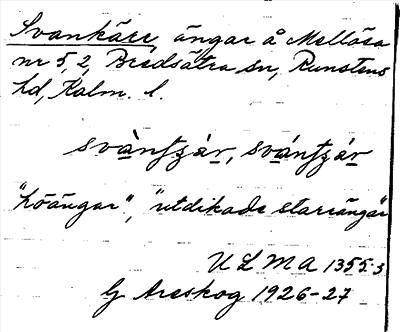 Svankärr, ängar å Mellösa
nr 5, 2, Bredsätra sn, Runstens
hd, Kalm. l.
svàntʃär, svántʃär
"höängar", "utdikade starrängar"
ULMA 1355:3
G Areskog 1926-27